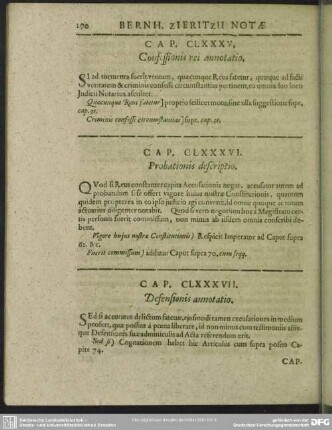 190 BERNH. ZIERITZII NOTÆ
CAP. CLXXXV.
Confessionis rei annotatio.
SI ad tormenta fuerit ventum, quæcunque Reus fatetur, quæque ad facti
veritatem & criminis confessi circumstantias pertinent, ea omnia suo loco
Judicii Notarius asseret.
Quæcunque Reus fatetur) proprio scilicet motu, sine ulla suggestione supr.
cap.
Criminis confessi circumstantias) supr. cap.
CAP. CLXXXVI.
Probationis descriptio.
QVod si Reus constanter capita Accusationis negat, accusator autem ad
probandum se offert vigore hujus nostræ Constitutionis, quantum
quidem properare in eo ipso judicio agi convenit, id omne quoque ac totum
actuarius diligenter notabit. Quod si vero negotium hoc à Magistratu certis
personis fuerit commissum, non minus ab iisdem omnia conscribi debent.
Vigore hujus nostræ Constitutionis) Respicit Imperator ad Caput supra
62. &c.
Fuerit commissum) additur Caput supra 70. cum seqq.
CAP. CLXXXVII.
Defensionis annotatio.
SEd si accusatus delictum fatetur, ejusmodi tamen excusationes in medium
profert, quæ possint à pœna liberare, id non minus cum testimoniis aliisque
Defensionis suæ adminiculis ad Acta referendum erit.
Sed si) Cognationem habet hic Articulus cum supra posito Capite
74.
CAP.